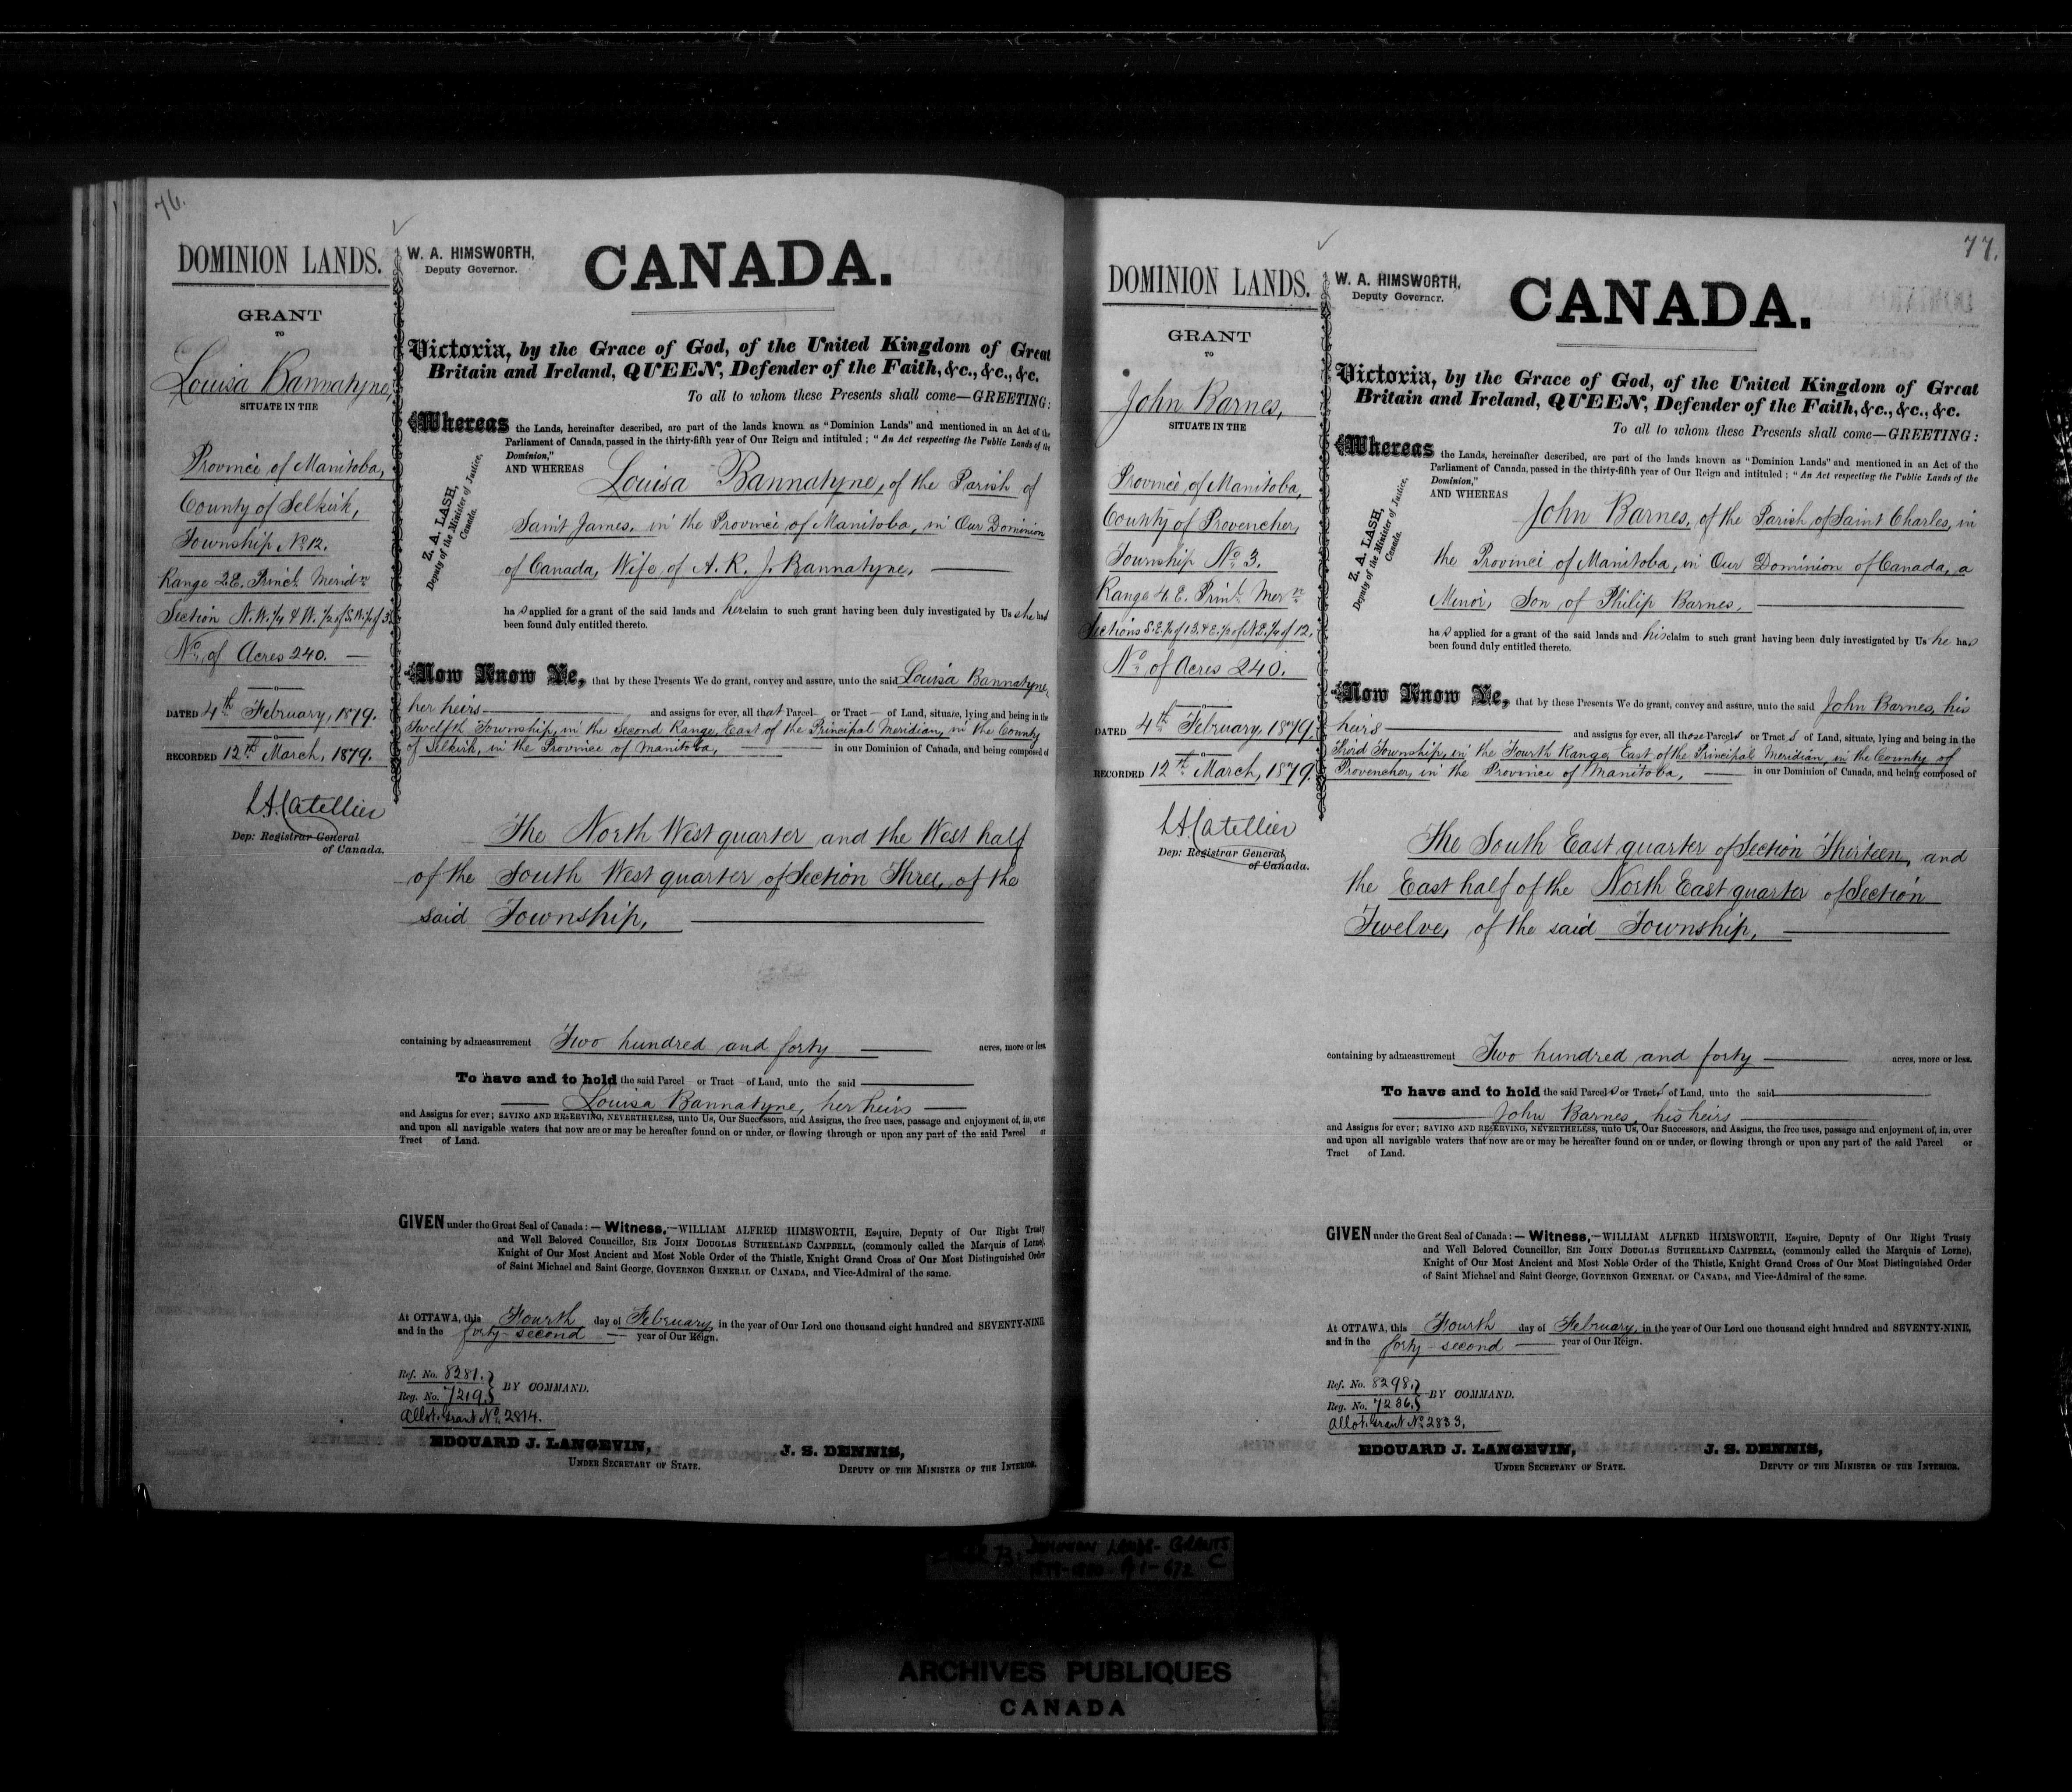 76.
DOMINION LANDS.
GRANT
TO
Louisa Bannatyne,
SITUATE IN THE
Province of Manitoba,
County of Selkirk,
Township No. 12.
Range 2 E. Princl. Meridn
Section N.W. 1/4 & W. 1/2 of S.W. 1/4 of 3.
No. of Acres 240.
DATED 4th February, 1879.
RECORDED 12th March, 1879.
L.A. Catellier
Dep: Registrar General
of Canada.
W. A. HIMSWORTH,
Deputy Governor.
CANADA.
Victoria, by the Grace of God, of the United Kingdom of Great
Britain and Ireland, QUEEN, Defender of the Faith, &c., &c., &c.
To all to whom these Presents shall come—GREETING:
Z. A. LASH,
Deputy of the Minister of Justice,
Canada.
Whereas the Lands, hereinafter described, are part of the lands known as "Dominion Lands" and mentioned in an Act of the
Parliament of Canada, passed in the thirty-fifth year of Our Reign and intituled; "An Act respecting the Public Lands of the
Dominion,"
AND WHEREAS Louisa Bannatyne, of the Parish of
Saint James, in the Province of Manitoba, in Our Dominion
of Canada, Wife of A. R. J. Bannatyne,
has applied for a grant of the said lands and her claim to such grant having been duly investigated by Us she has
been found duly entitled thereto.
Now Know Ye, that by these Presents We do grant, convey and assure, unto the said Louisa Bannatyne,
her heirs and assigns for ever, all that Parcel or Tract of Land, situate, lying and being in the
Twelfth Township, in the Second Range, East of the Principal Meridian, in the County
of Selkirk, in the Province of Manitoba, in our Dominion of Canada, and being composed of
The North West quarter and the West half
of the South West quarter of Section Three, of the
said Township,
containing by admeasurement Two hundred and forty acres, more or less
To have and to hold the said Parcel or Tract of Land, unto the said
Louisa Bannatyne, her heirs
and Assigns for ever; SAVING AND RESERVING, NEVERTHELESS, unto Us, Our Successors, and Assigns, the free uses, passage and enjoyment of, in, over
and upon all navigable waters that now are or may be hereafter found on or under, or flowing through or upon any part of the said Parcel or
Tract of Land.
GIVEN under the Great Seal of Canada:—Witness,—WILLIAM ALFRED HIMSWORTH, Esquire, Deputy of Our Right Trusty
and Well Beloved Councillor, SIR JOHN DOUGLAS SUTHERLAND CAMPBELL, (commonly called the Marquis of Lorne),
Knight of Our Most Ancient and Most Noble Order of the Thistle, Knight Grand Cross of Our Most Distinguished Order
of Saint Michael and Saint George, GOVERNOR GENERAL OF CANADA, and Vice-Admiral of the same.
At OTTAWA, this Fourth day of February, in the year of Our Lord one thousand eight hundred and SEVENTY-NINE
and in the forty-second year of Our Reign.
Ref. No. 8281.
Reg. No. 7219. } BY COMMAND.
Allot. Grant No. 2814.
EDOUARD J. LANGEVIN,
UNDER SECRETARY OF STATE.
J. S. DENNIS,
DEPUTY OF THE MINISTER OF THE INTERIOR.
77.
DOMINION LANDS.
GRANT
TO
John Barnes,
SITUATE IN THE
Province of Manitoba,
County of Provencher,
Township No. 3.
Range 4. E. Prinl. Mern
Sections S.E. 1/4 of 13. & E. 1/2 of N.E. 1/4 of 12.
No. of Acres 240.
DATED 4th February, 1879.
RECORDED 12th March, 1879.
L.A. Catellier
Dep: Registrar General
of Canada.
W. A. HIMSWORTH,
Deputy Governor.
CANADA.
Victoria, by the Grace of God, of the United Kingdom of Great
Britain and Ireland, QUEEN, Defender of the Faith, &c., &c., &c.
To all to whom these Presents shall come—GREETING:
Z. A. LASH,
Deputy of the Minister of Justice,
Canada.
Whereas the Lands, hereinafter described, are part of the lands known as "Dominion Lands" and mentioned in an Act of the
Parliament of Canada, passed in the thirty-fifth year of Our Reign and intituled; "An Act respecting the Public Lands of the
Dominion,"
AND WHEREAS John Barnes, of the Parish of Saint Charles, in
the Province of Manitoba, in Our Dominion of Canada, a
Minor, Son of Philip Barnes,
has applied for a grant of the said lands and his claim to such grant having been duly investigated by Us he has
been found duly entitled thereto.
Now Know Ye, that by these Presents We do grant, convey and assure, unto the said John Barnes, his
heirs and assigns for ever, all those Parcels or Tracts of Land, situate, lying and being in the
Third Township, in the Fourth Range, East of the Principal Meridian, in the County of
Provencher, in the Province of Manitoba, in our Dominion of Canada, and being composed of
The South East quarter of Section Thirteen, and
the East half of the North East quarter of Section
Twelve, of the said Township,
containing by admeasurement Two hundred and forty acres, more or less.
To have and to hold the said Parcels or Tracts of Land, unto the said
John Barnes, his heirs
and Assigns for ever; SAVING AND RESERVING, NEVERTHELESS, unto Us, Our Successors, and Assigns, the free uses, passage and enjoyment of, in, over
and upon all navigable waters that now are or may be hereafter found on or under, or flowing through or upon any part of the said Parcel or
Tract of Land.
GIVEN under the Great Seal of Canada:—Witness,—WILLIAM ALFRED HIMSWORTH, Esquire, Deputy of Our Right Trusty
and Well Beloved Councillor, SIR JOHN DOUGLAS SUTHERLAND CAMPBELL, (commonly called the Marquis of Lorne),
Knight of Our Most Ancient and Most Noble Order of the Thistle, Knight Grand Cross of Our Most Distinguished Order
of Saint Michael and Saint George, GOVERNOR GENERAL OF CANADA, and Vice-Admiral of the same.
At OTTAWA, this Fourth day of February, in the year of Our Lord one thousand eight hundred and SEVENTY-NINE,
and in the forty-second year of Our Reign.
Ref. No. 8298.
Reg. No. 7236. } BY COMMAND.
Allot. Grant No. 2833.
EDOUARD J. LANGEVIN,
UNDER SECRETARY OF STATE.
J. S. DENNIS,
DEPUTY OF THE MINISTER OF THE INTERIOR.
DOMINION LANDS - GRANTS
1-672 C
ARCHIVES PUBLIQUES
CANADA